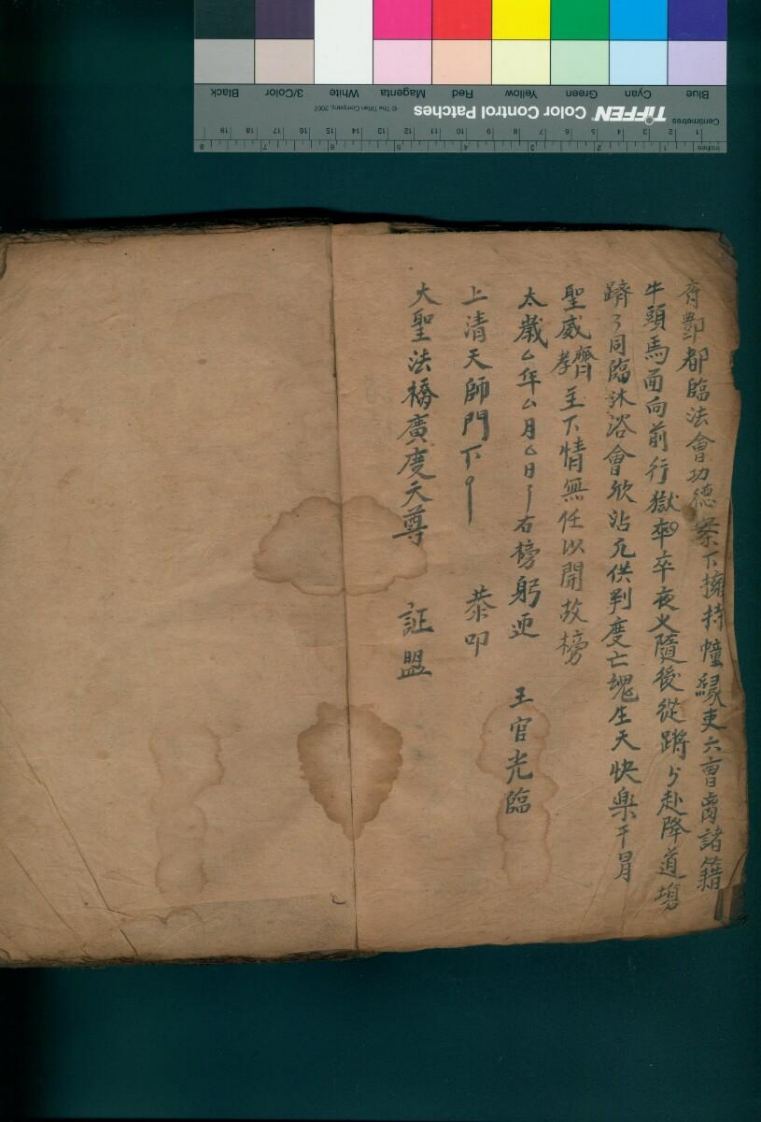 酆都臨法會功德察下擁持幢緣吏六曹齎諸籍
牛頭馬面向前行獄卒夜叉隨後從蹡々赴降道塲
蹡々同臨沐浴會欣沾允供判度亡魂生天快樂干冒
聖威齋孝主下情無任以聞故榜
太歲厶年厶月厶日 右榜躬迎 王官光臨
上清天師門下 恭叩
大聖法橋廣度天尊 証盟
Blue Cyan Green Yellow Red Magenta White 3/Color Black
TIFFEN Color Control Patches © The Tiffen Company, 2007
Centimetres 1 2 3 4 5 6 7 8 9 10 11 12 13 14 15 16 17 18 19
Inches 1 2 3 4 5 6 7 8